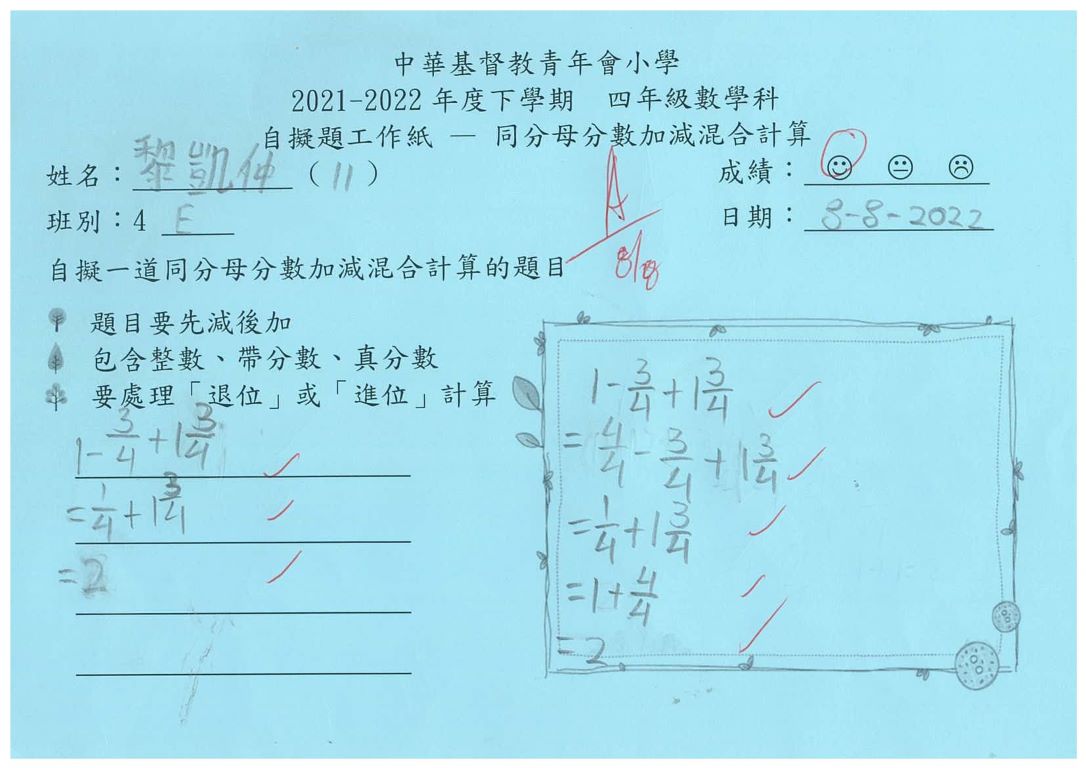 中華基督教青年會小學
2021-2022 年度下學期 四年級數學科
自擬題工作紙 — 同分母分數加減混合計算
姓名：黎凱仲 (11)
成績：
班別：4 E
日期：8-8-2022
A
8/8
自擬一道同分母分數加減混合計算的題目
題目要先減後加
包含整數、帶分數、真分數
要處理「退位」或「進位」計算
1-3/4+1 3/4
=1/4+1 3/4
=2
1-3/4+1 3/4
=4/4-3/4+1 3/4
=1/4+1 3/4
=1+4/4
=2